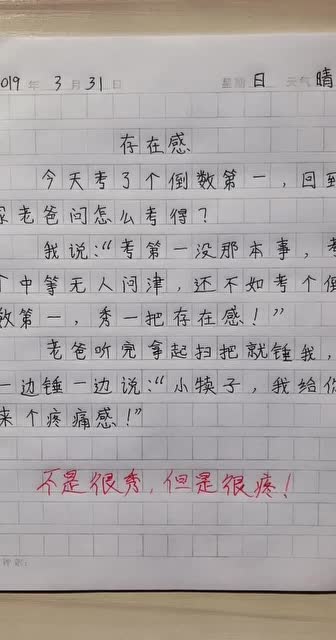 019年 3月31日 星期 日 天气 晴
存在感
今天考了个倒数第一，回到
家老爸问怎么考得？
我说：“考第一没那本事，考
个中等无人问津，还不如考个倒
数第一，秀一把存在感！”
老爸听完拿起扫把就锤我，
一边锤一边说：“小犊子，我给你
来个疼痛感！”
不是很秀，但是很疼！